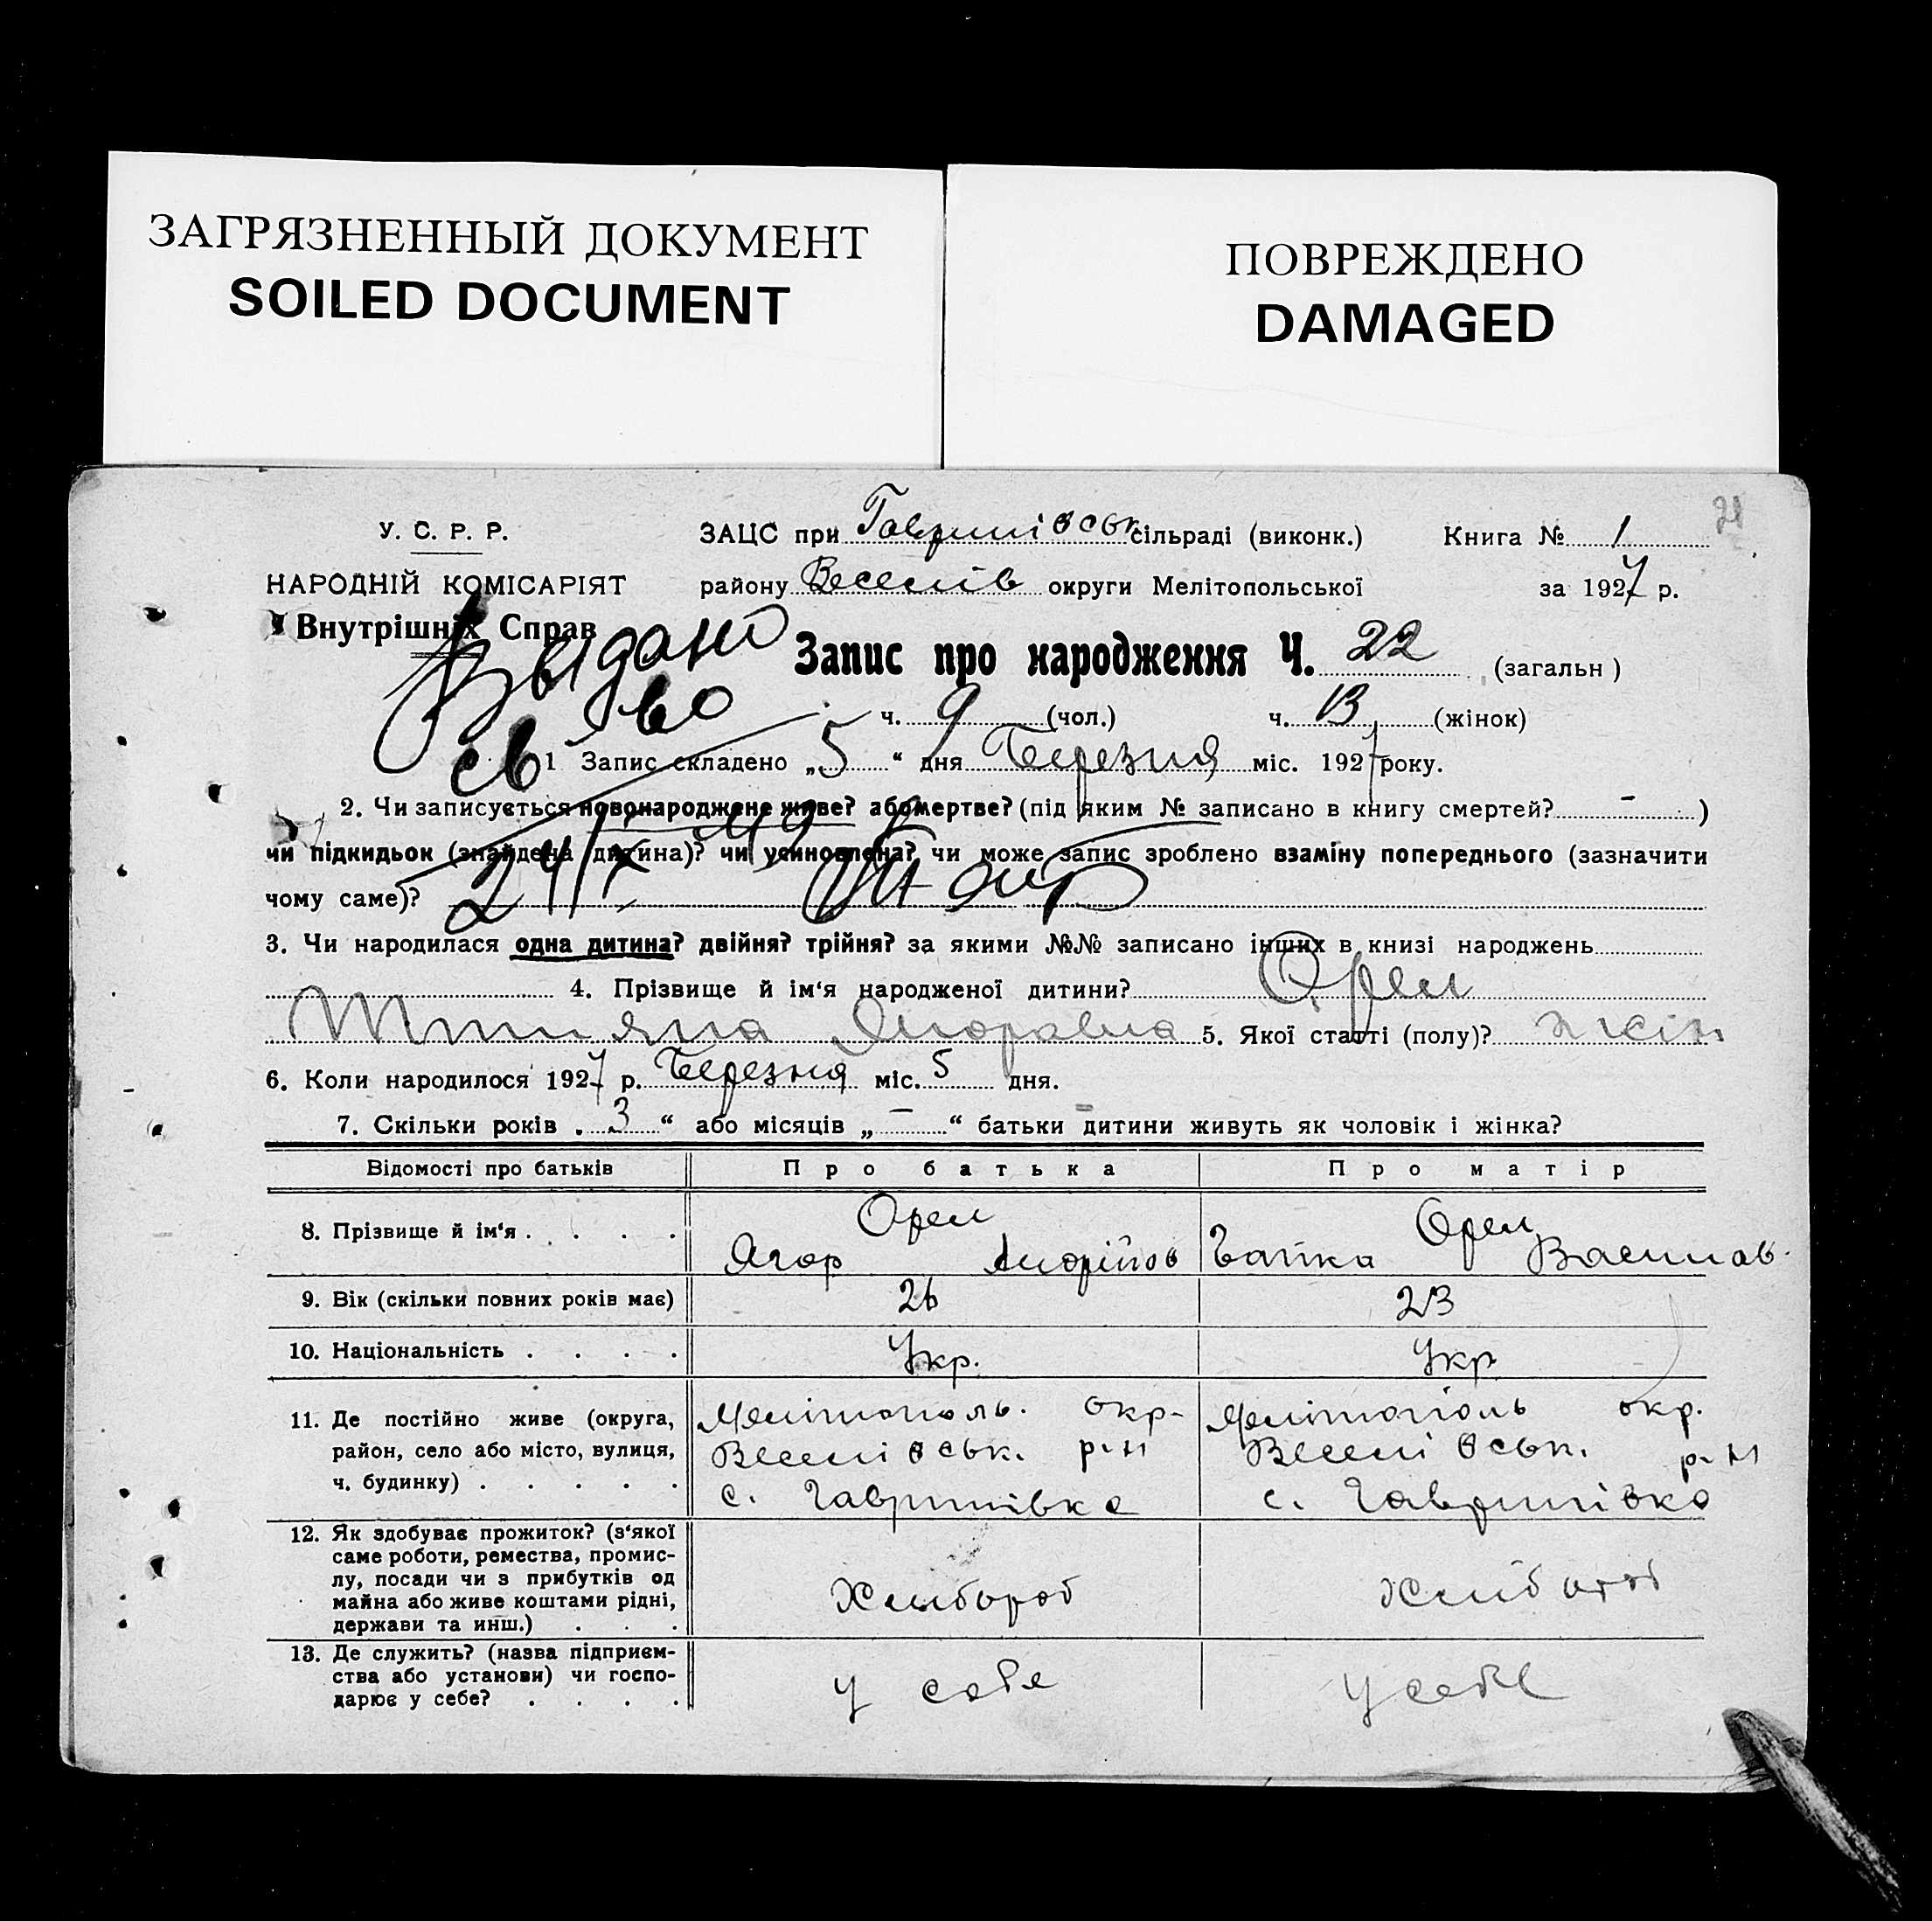 ЗАГРЯЗНЕННЫЙ ДОКУМЕНТ
SOILED DOCUMENT
ПОВРЕЖДЕНО
DAMAGED
У. С. Р. Р.
НАРОДНІЙ КОМІСАРІЯТ
Внутрішніх Справ
ЗАЦС при Гаврилівськ сільраді (виконк.) Книга № 1
району Веселів округи Мелітопольської за 1927 р.
Запис про народження Ч. 22 (загальн)
ч. 9 (чол.) ч. 13 (жінок)
Выдано
св во
1 Запис складено „5“ дня Березня міс. 1927 року.
2. Чи записується новонароджене живе? або мертве? (під яким № записано в книгу смертей? - )
чи підкидьок (знайдена дитина)? чи усиновлена? чи може запис зроблено взаміну попереднього (зазначити
чому саме)?
3. Чи народилася одна дитина? двійня? трійня? за якими №№ записано інших в книзі народжень
4. Прізвище й ім‘я народженої дитини? Орел
5. Якої статті (полу)? жін
6. Коли народилося 1927 р. Березня міс. 5 дня.
7. Скільки років „3“ або місяців „—“ батьки дитини живуть як чоловік і жінка?
Відомості про батьків Про батька Про матір
8. Прізвище й ім‘я . . . . Орел Орел
Ягор Васильов
9. Вік (скільки повних років має) 26 23
10. Національність . . . . Укр. Укр
11. Де постійно живе (округа, Мелітополь. окр- Мелітополь окр.
район, село або місто, вулиця, Веселівськ. р-н Веселівськ. р-н
ч. будинку) . . . . . с. Гаврилівка с. Гаврилівка
12. Як здобуває прожиток? (з‘якої
саме роботи, ремества, промис-
лу, посади чи з прибутків од
майна або живе коштами рідні, Хлибороб
держави та инш.) . . .
13. Де служить? (назва підприєм-
ства або установи) чи госпо- у себе у себе
дарює у себе? . . . .